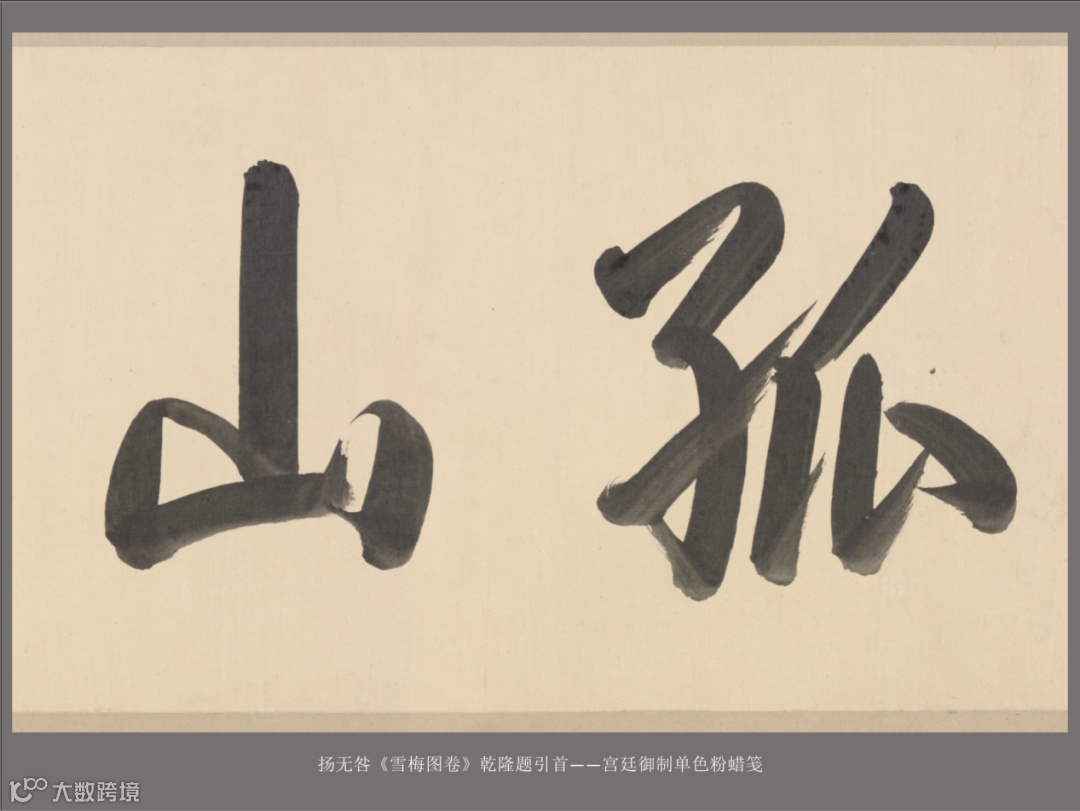 孤山
扬无咎《雪梅图卷》乾隆题引首——宫廷御制单色粉蜡笺
大数跨境